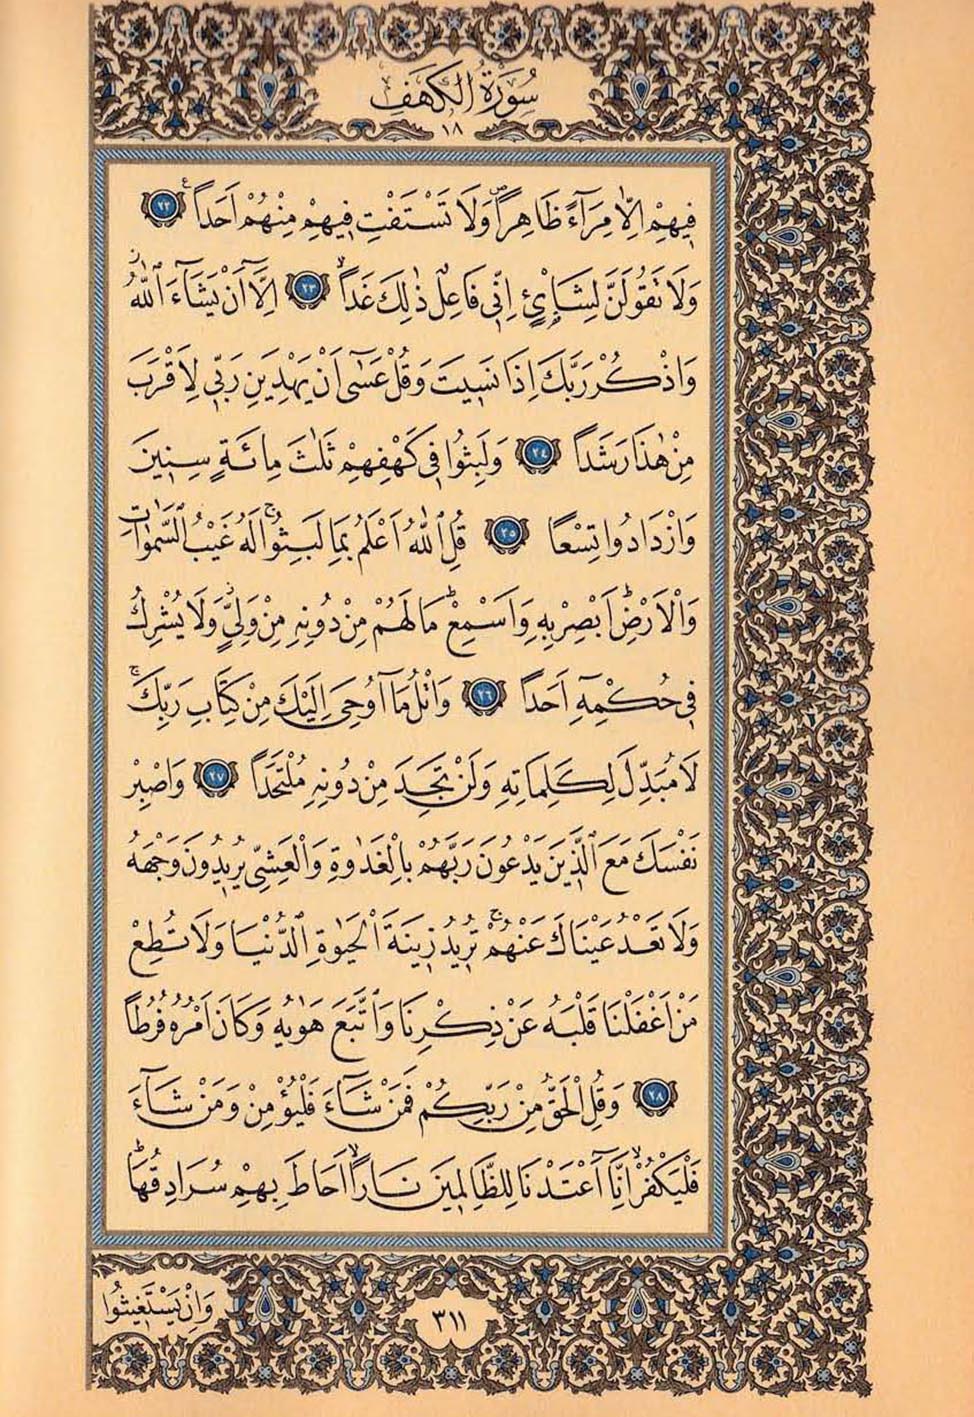 سُورَةُ الْكَهْفِ
١٨
فِيهِمْ اِلَّا مِرَآءً ظَاهِراًۖ وَلَا تَسْتَفْتِ فِيهِمْ مِنْهُمْ اَحَداً ﴿٢٢﴾
وَلَا تَقُولَنَّ لِشَاْيْءٍ اِنِّي فَاعِلٌ ذٰلِكَ غَداًۙ ﴿٢٣﴾ اِلَّٓا اَنْ يَشَٓاءَ اللّٰهُۘ
وَاذْكُرْ رَبَّكَ اِذَا نَسِيتَ وَقُلْ عَسٰٓى اَنْ يَهْدِيَنِ رَبِّي لِاَقْرَبَ
مِنْ هٰذَا رَشَداً ﴿٢٤﴾ وَلَبِثُوا فِي كَهْفِهِمْ ثَلٰثَ مِائَةٍ سِنِينَ
وَازْدَادُوا تِسْعًا ﴿٢٥﴾ قُلِ اللّٰهُ اَعْلَمُ بِمَا لَبِثُواۚ لَهُ غَيْبُ السَّمٰوَاتِ
وَالْاَرْضِۜ اَبْصِرْ بِهِ وَاَسْمِعْۜ مَا لَهُمْ مِنْ دُونِهِ مِنْ وَلِيٍّۘ وَلَا يُشْرِكُ
فِي حُكْمِهِٓ اَحَداً ﴿٢٦﴾ وَاتْلُ مَٓا اُو۫حِيَ اِلَيْكَ مِنْ كِتَابِ رَبِّكَۚ
لَا مُبَدِّلَ لِكَلِمَاتِهِ وَلَنْ تَجِدَ مِنْ دُونِهِ مُلْتَحَداً ﴿٢٧﴾ وَاصْبِرْ
نَفْسَكَ مَعَ الَّذِينَ يَدْعُونَ رَبَّهُمْ بِالْغَدٰوةِ وَالْعَشِيِّ يُرِيدُونَ وَجْهَهُ
وَلَا تَعْدُ عَيْنَاكَ عَنْهُمْۚ تُرِيدُ زِينَةَ الْحَيٰوةِ الدُّنْيَا وَلَا تُطِعْ
مَنْ اَغْفَلْنَا قَلْبَهُ عَنْ ذِكْرِنَا وَاتَّبَعَ هَوٰيهُ وَكَانَ اَمْرُهُ فُرُطاً
﴿٢٨﴾ وَقُلِ الْحَقُّ مِنْ رَبِّكُمْ فَمَنْ شَٓاءَ فَلْيُؤْمِنْ وَمَنْ شَٓاءَ
فَلْيَكْفُرْۙ اِنَّٓا اَعْتَدْنَا لِلظَّالِمِينَ نَاراًۙ اَحَاطَ بِهِمْ سُرَادِقُهَاۜ
وَاِنْ يَسْتَغِيثُوا
٣١١